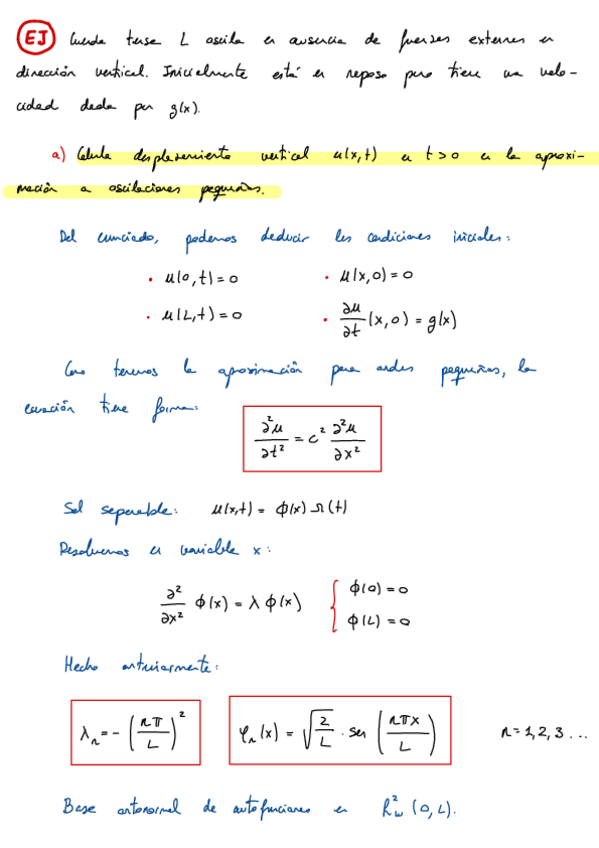 EJ Cuerda tensa L oscila en ausencia de fuerzas externas en
dirección vertical. Inicialmente está en reposo pero tiene una velo-
cidad dada por g(x).
a) Calcula desplazamiento vertical u(x,t) en t>0 en la aproxi-
mación a oscilaciones pequeñas.
Del enunciado, podemos deducir las condiciones iniciales:
• u(0,t)=0 • u(x,0)=0
• u(L,t)=0 • ∂u/∂t (x,0) = g(x)
Como tenemos la aproximación para ondas pequeñas, la
ecuación tiene forma:
∂²u/∂t² = c² ∂²u/∂x²
Sol separable: u(x,t) = ϕ(x) Ω(t)
Resolvemos en variable x:
∂²/∂x² ϕ(x) = λ ϕ(x) { ϕ(0)=0
ϕ(L)=0
Hecho anteriormente:
λₙ = - (nπ/L)² φₙ(x) = √(2/L) · sen (nπx/L) n=1,2,3...
Base ortonormal de autofunciones en R²w (0,L).